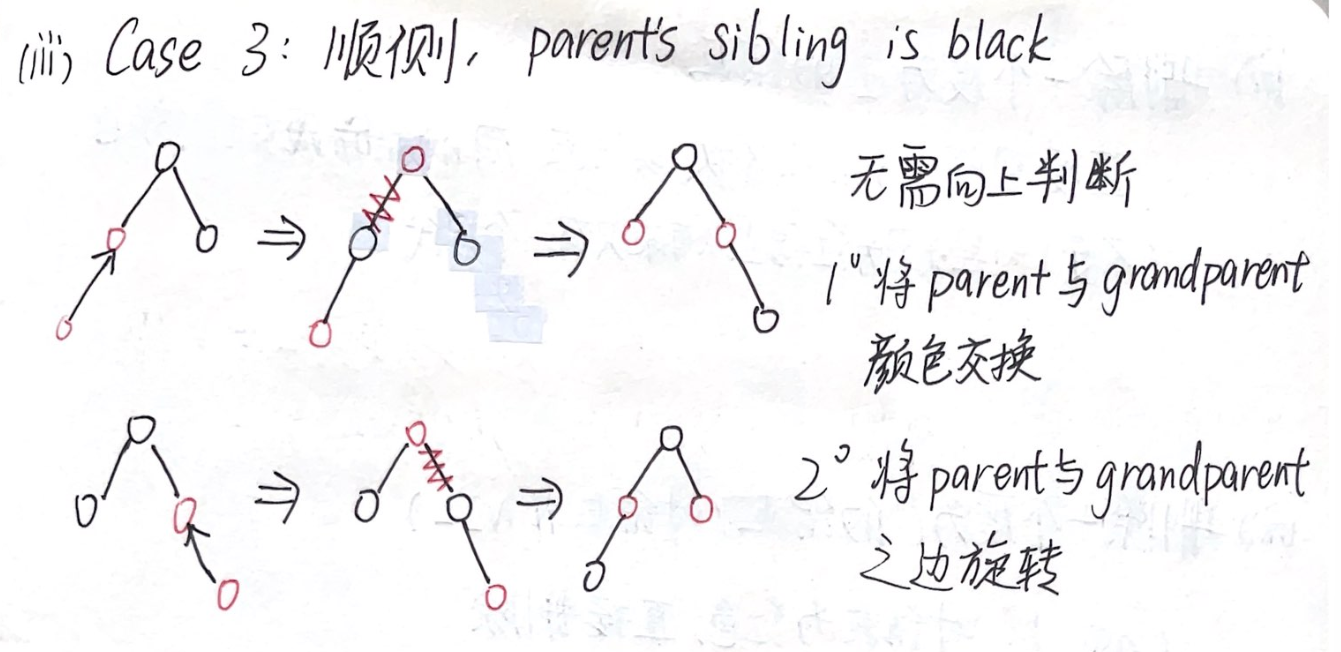 (iii) Case 3: 顺侧, parent's sibling is black
无需向上判断
1° 将 parent 与 grandparent
颜色交换
2° 将 parent 与 grandparent
之边旋转